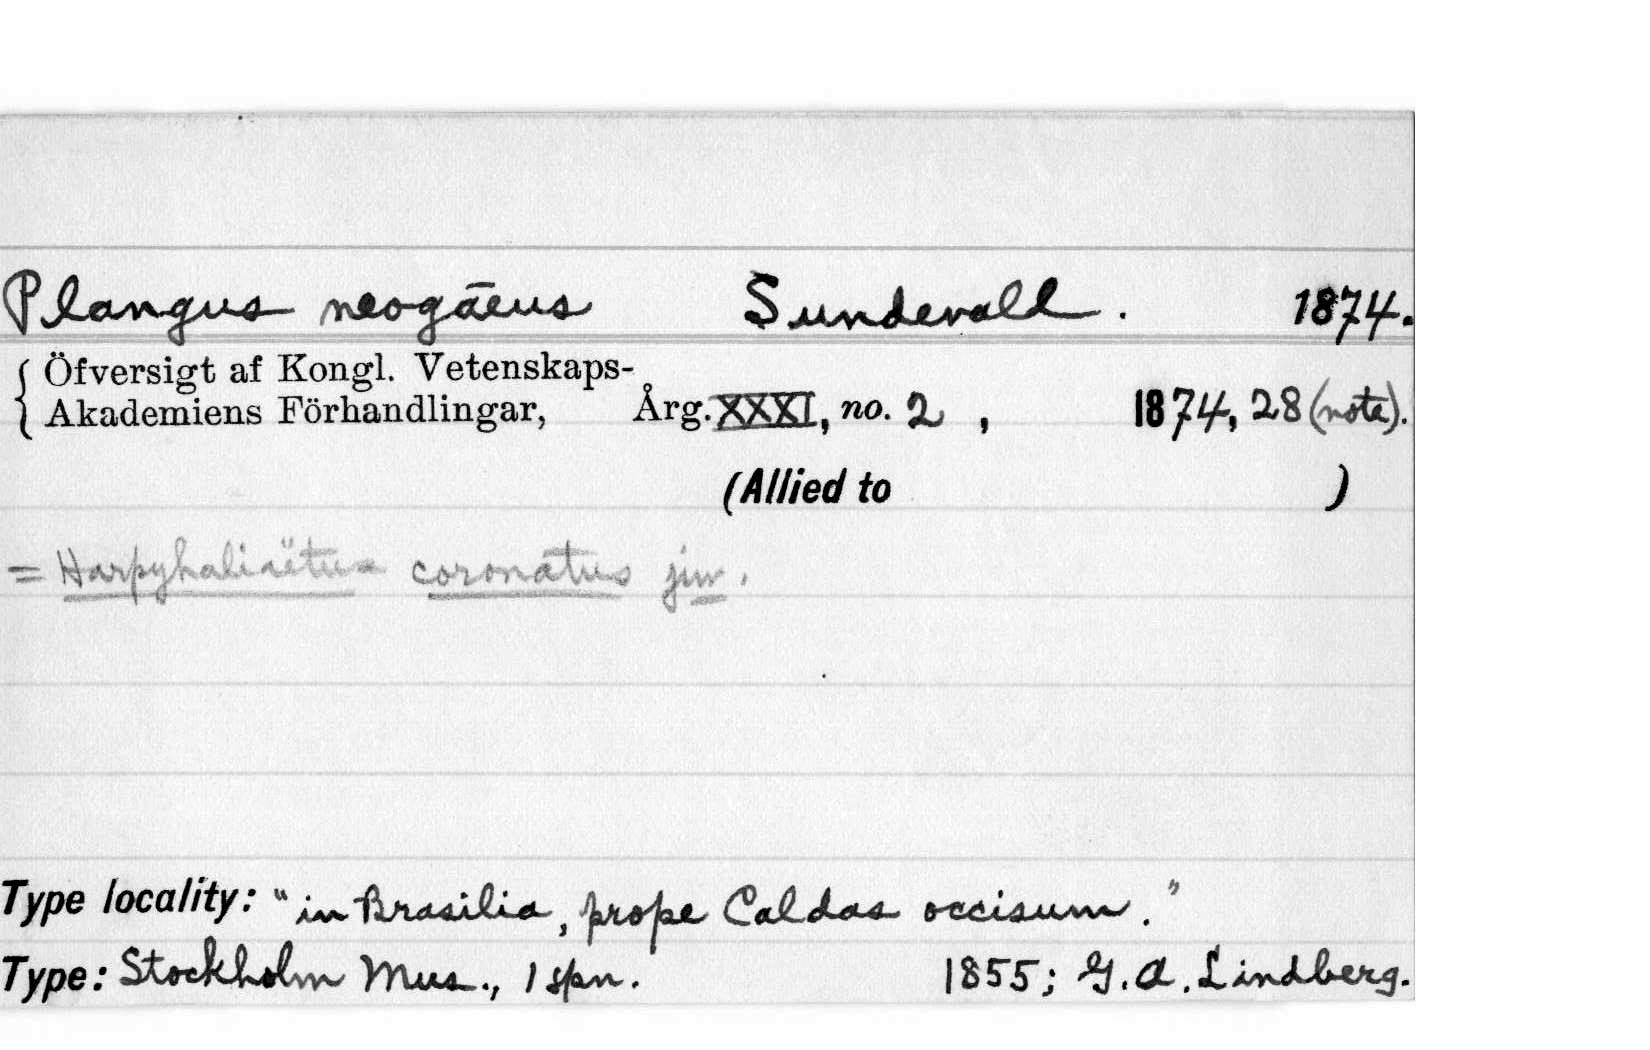 Plangus neogäeus Sundevall. 1874.
Öfversigt af Kongl. Vetenskaps-
Akademiens Förhandlingar, Årg. XXXI, no. 2, 1874, 28 (note).
(Allied to )
= Harpyhaliaëtus coronatus juv.
Type locality: "in Brasilia, prope Caldas occisum."
Type: Stockholm Mus., 1 spn. 1855; G. A. Lindberg.